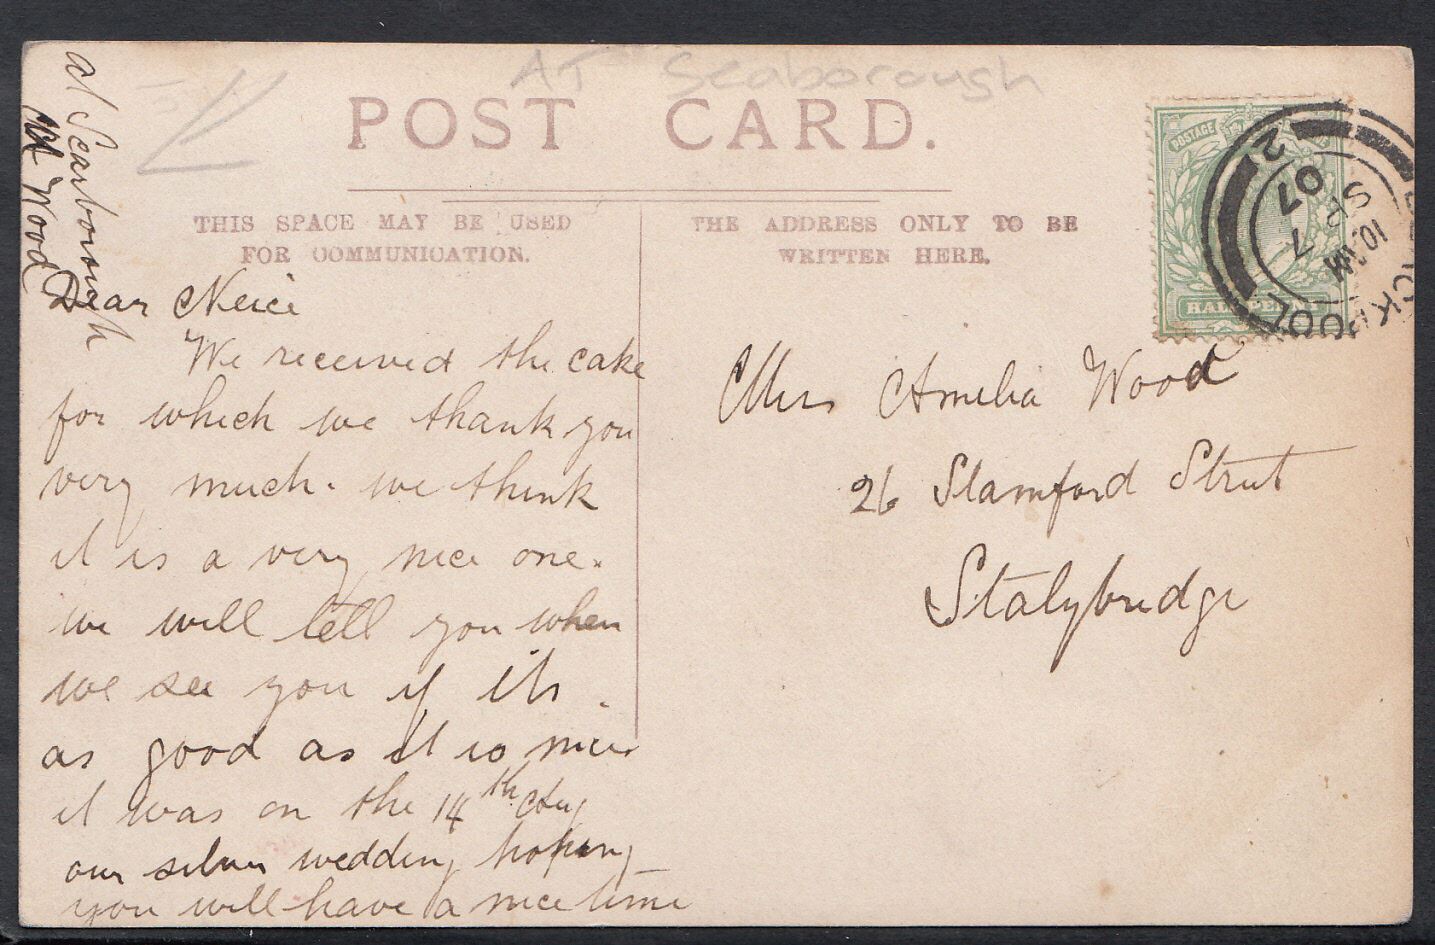 AT Seaborough
POST CARD.
THIS SPACE MAY BE USED
FOR COMMUNICATION.
THE ADDRESS ONLY TO BE
WRITTEN HERE.
POSTAGE
HALF PENNY
BLACKPOOL
10. AM
SP 7
07
2
Dear Neice
We received the cake
for which we thank you
very much. we think
it is a very nice one.
we will tell you when
we see you if its
as good as it is nice
it was on the 14th Aug
our silver wedding hoping
you will have a nice time
at Scarborough
Wood
Miss Amelia Wood
26 Stamford Street
Stalybridge